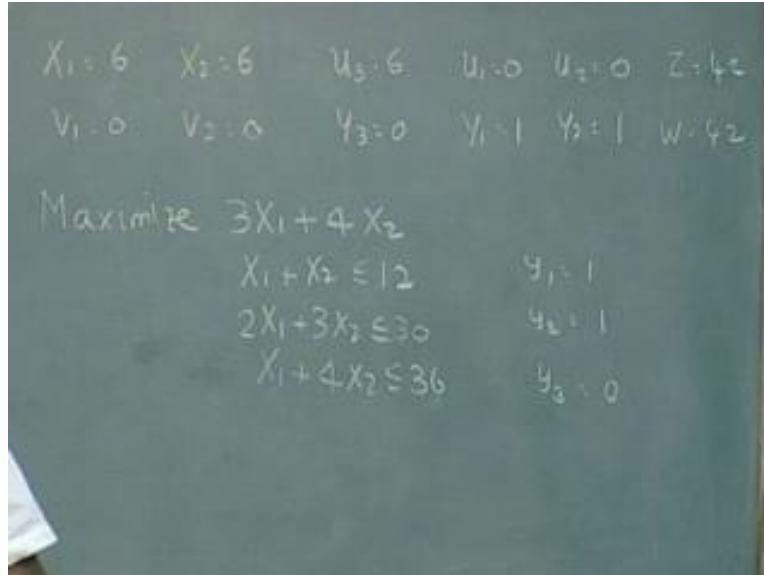 X₁ = 6 X₂ = 6 U₃ = 6 U₁ = 0 U₂ = 0 Z = 42
V₁ = 0 V₂ = 0 Y₃ = 0 Y₁ = 1 Y₂ = 1 W = 42
Maximize 3X₁ + 4X₂
X₁ + X₂ ≤ 12 y₁ = 1
2X₁ + 3X₂ ≤ 30 y₂ = 1
X₁ + 4X₂ ≤ 36 y₃ = 0